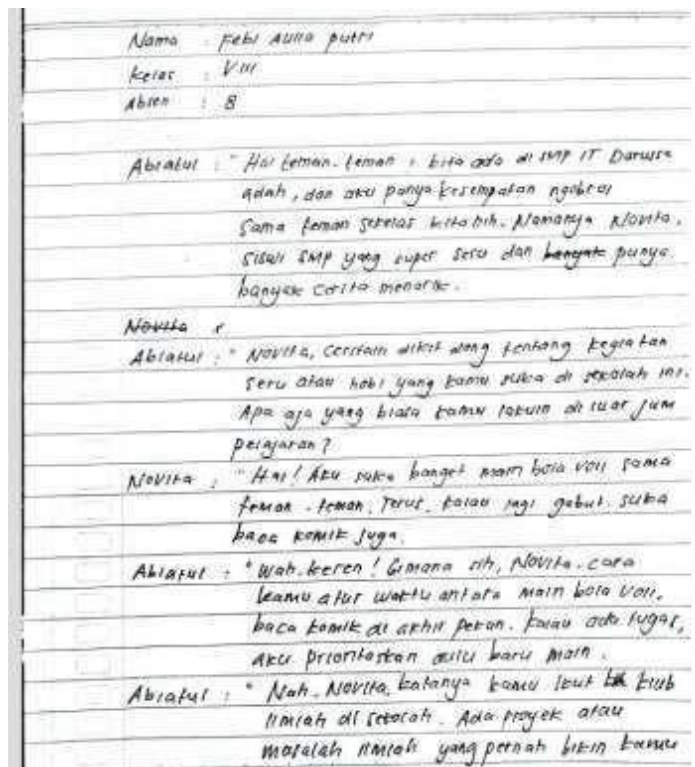 Nama : Febi Aulia putri
Kelas : VIII
Absen : 8
Abiatul : "Hai teman-teman, kita ada di SMP IT Darussa
adah, dan aku punya kesempatan ngobrol
Sama teman sekelas kita nih. Namanya Novita,
siswi SMP yang super seru dan banyak punya
banyak cerita menarik.
Novita :
Abiatul : " Novita, ceritain dikit dong tentang kegiatan
seru atau hobi yang kamu suka di sekolah ini.
Apa aja yang biasa kamu lakuin di luar jam
pelajaran?
Novita : "Hai! Aku suka banget main bola voli sama
teman-teman. Terus, kalau lagi gabut, suka
baca komik juga.
Abiatul : "Wah, keren! Gimana nih, Novita, cara
kamu atur waktu antara main bola voli,
baca komik di akhir pekan. kalau ada tugas,
aku prioritaskan dulu baru main.
Abiatul : " Nah, Novita, katanya kamu ikut klub
ilmiah di sekolah. Ada proyek atau
masalah ilmiah yang pernah bikin kamu